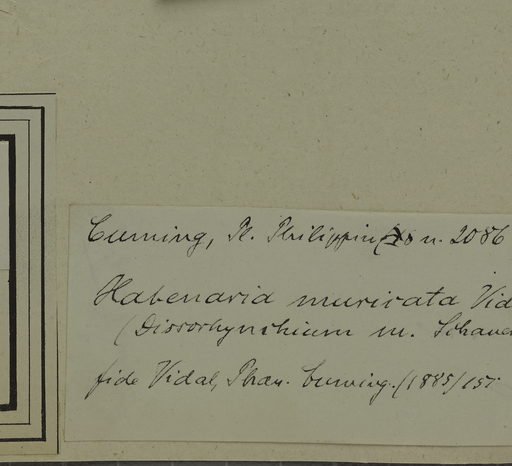 Cuming, Pl. Philippin n. 2086
Habenaria muricata Vid
(Dissorhynchium m. Schauer
fide Vidal, Phan. Cuming. (1885) 151